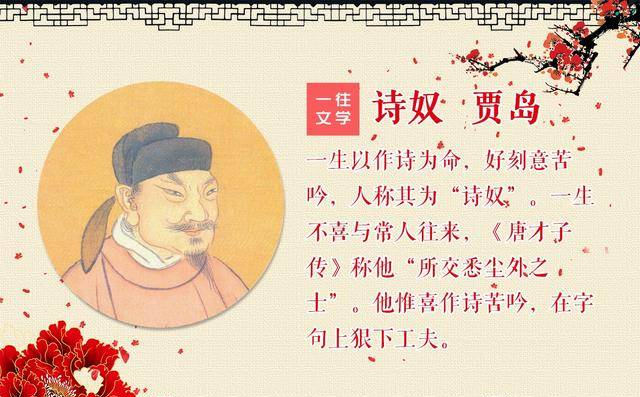 一往
文学
诗奴 贾岛
一生以作诗为命，好刻意苦
吟，人称其为“诗奴”。一生
不喜与常人往来，《唐才子
传》称他“所交悉尘外之
士”。他惟喜作诗苦吟，在字
句上狠下工夫。